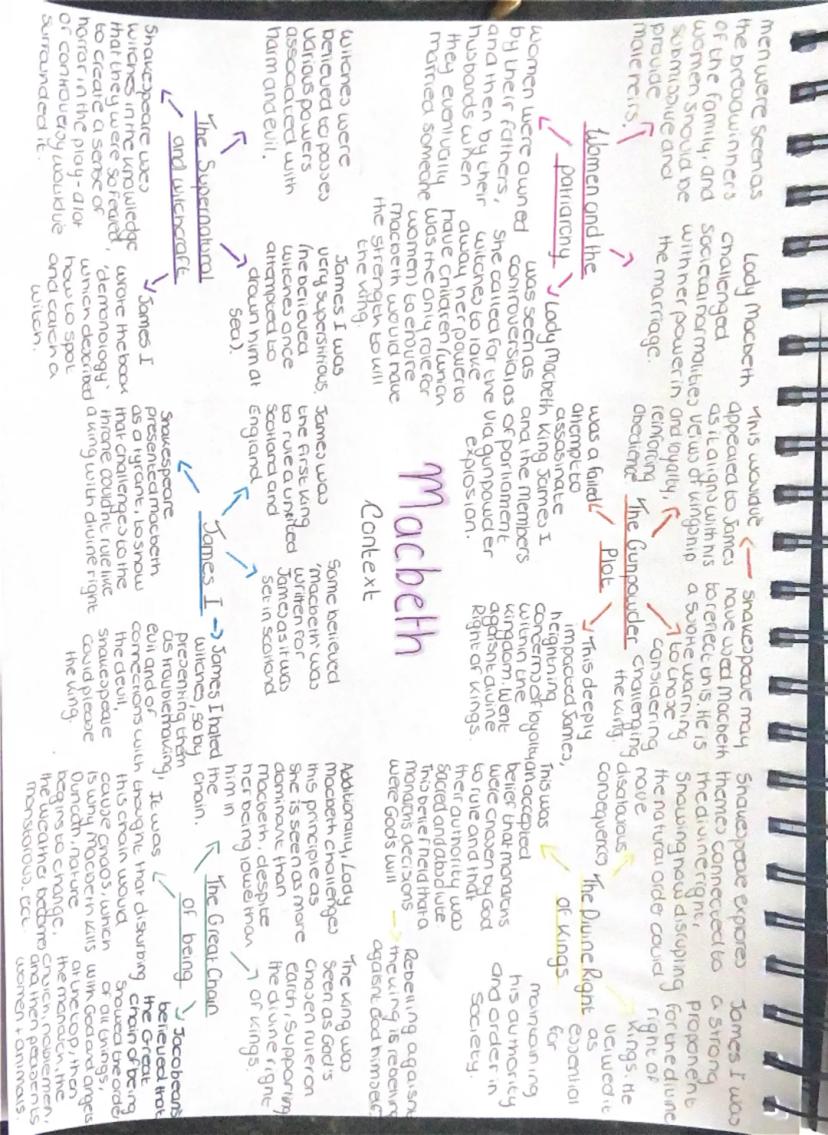 Macbeth
Context
Women and the
patriarchy
men were seen as
the breadwinners
of the family, and
women should be
submissive and
provide
male heirs.
Lady Macbeth
challenged
societal normalities
with her power in
the marriage.
women were owned
by their fathers,
and then by their
husbands when
they eventually
married someone
Lady Macbeth
was seen as
controversial as
she called for the
witches to take
away her power to
have children (which
was the only role for
women) to ensure
Macbeth would have
the strength to kill
the king.
The Gunpowder
Plot
This would've
appeared to James
as it aligns with his
veiws of kingship
and loyalty,
reinforcing
obedience
Shakespeare may
have used Macbeth
to reflect this. He is
a subtle warning
to those
considering
challenging
the king.
was a failed
attempt to
assasinate
King James I
and the members
of parliament
via gunpowder
explosion.
This deeply
impacted James,
heightning
concerns of loyalty
within the
kingdom. Went
agaisnt divine
Right of Kings.
The Divine Right
of Kings
Shakespeare explores
themes connected to
the divine right,
showing how disrupting
the natural order could
have
disatourus
consequences
James I was
a strong
proponent
for the divine
right of
Kings. He
veiwed it as
essential
for
maintaining
his authority
and order in
society.
This was
an accepted
belief that monarchs
were chosen by God
to rule and that
their authority was
sacred and absolute
This belief held that a
monarchs decisions
were Gods will
Rebelling agaisnt
the king is rebelling
agaisnt God himself
The Supernatural
and witchcraft
witches were
believed to posses
various powers
associated with
harm and evil.
James I was
very superstitious.
(he believed
witches once
attempted to
drown him at
sea).
Shakespeare uses
witches in the knowledge
that they were so feared,
to create a sense of
horror in the play - a lot
of controversy would've
surrounded it.
James I
wrote the book
'demonology'
which described
how to spot
and catch a
witch.
James I
James was
the first king
to rule a united
Scotland and
England
Some believed
'Macbeth' was
written for
James as it was
set in scotland
Shakespeare
presented macbeth
as a tyrant, to show
that challenges to the
throne couldn't rule like
a king with divine right
James I hated
witches, so by
presenting them
as troublemaking,
evil and of
connections with
the devil,
Shakespeare
could please
the king.
The Great Chain
of being
Additionally, Lady
Macbeth challenges
this principle as
she is seen as more
dominant than
Macbeth, despite
her being lower than
him in
the chain.
The King was
seen as God's
chosen ruler on
earth, supporting
the divine right
of Kings.
It was
thought that disturbing
this chain would
cause chaos, which
is why Macbeth kills
Duncan, nature
begins to change,
the weather become
monstorous. ect.
Jacobeans
believed that
the Great
chain of being
showed the order
of all things,
with God and angels
at the top, then
the monarch, the
church, noblemen,
and then peasents
women + animals.